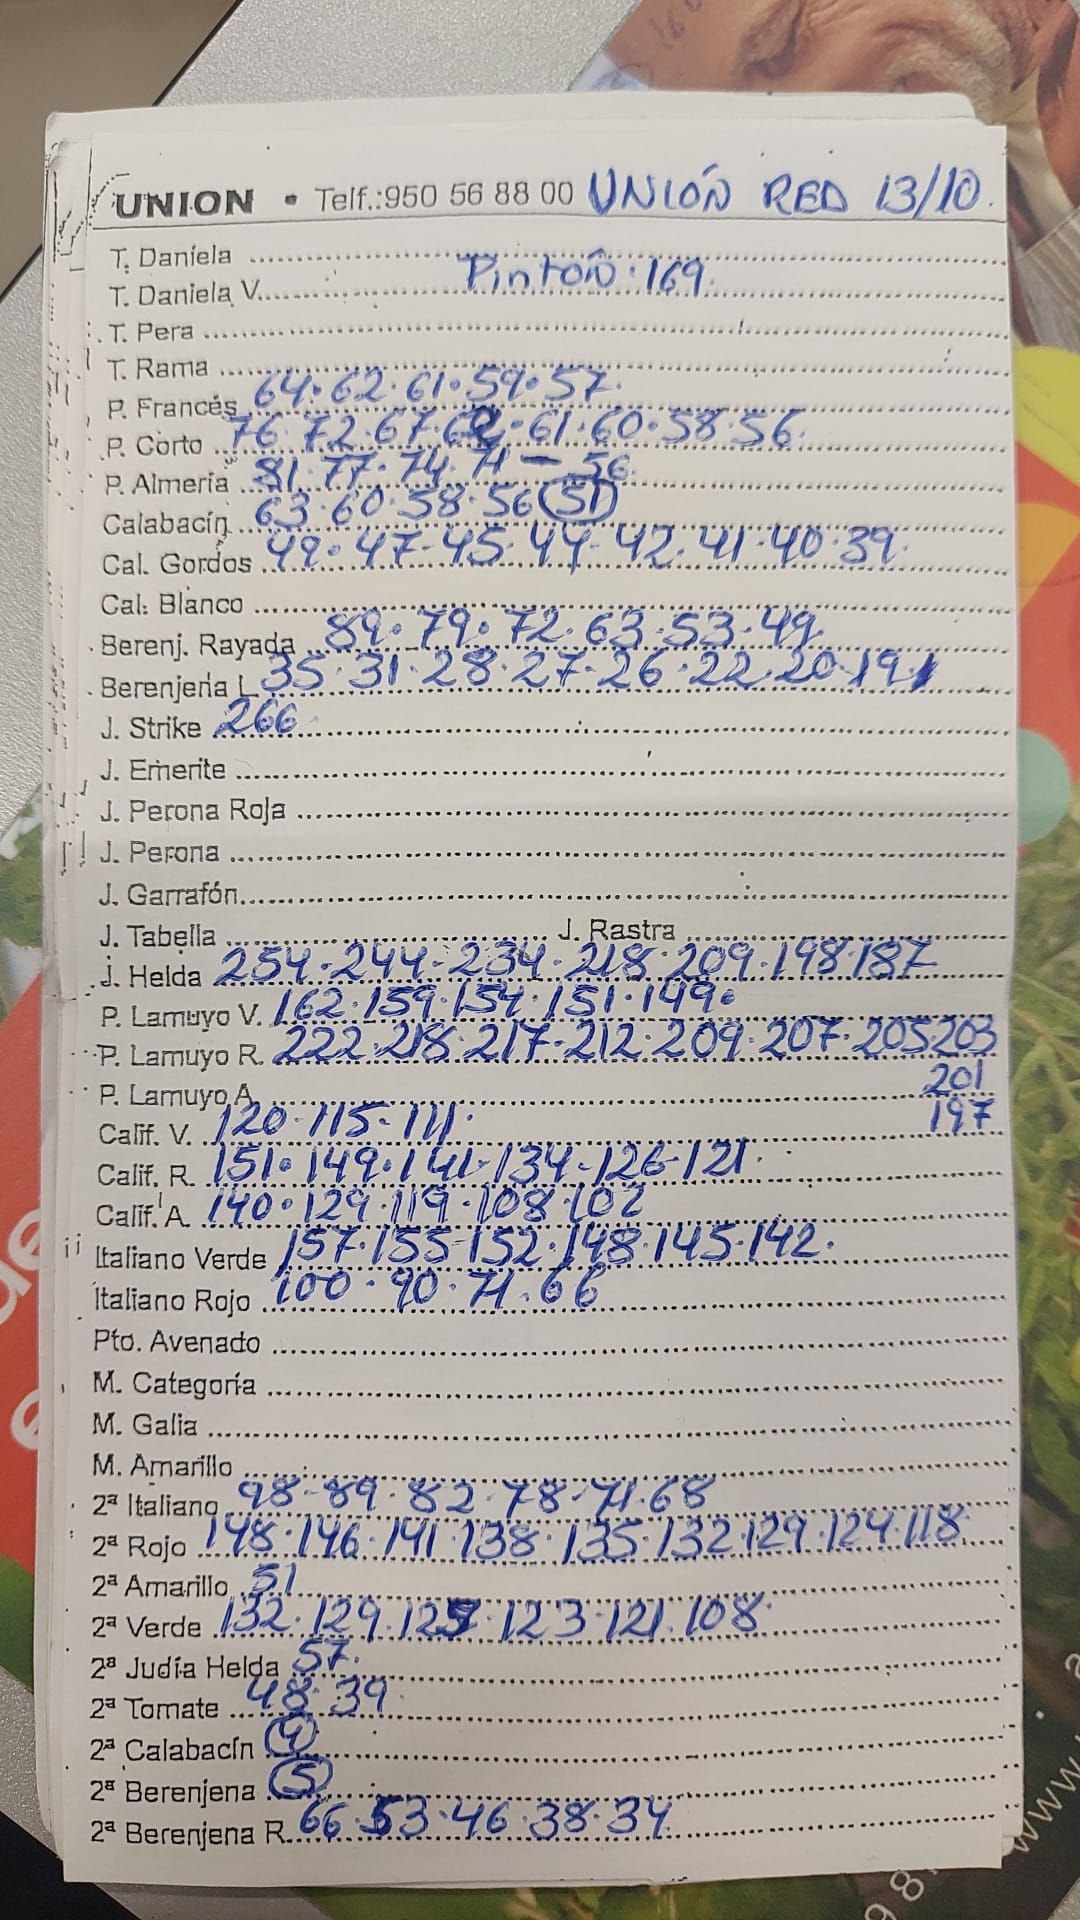 UNION • Telf.:950 56 88 00 UNIÓN RED 13/10
T. Daniela
T. Daniela V. Pintón: 169
T. Pera
T. Rama
P. Francés 64·62·61·59·57
P. Corto 76·72·67·62·61·60·58·56
P. Almería 81·77·74·71-56
Calabacín 63·60·58·56 51
Cal. Gordos 49·47-45·44-42·41·40·39
Cal. Blanco
Berenj. Rayada 89·79·72·63·53·49
Berenjena L 35·31·28·27-26·22·20·19
J. Strike 266
J. Emerite
J. Perona Roja
J. Perona
J. Garrafón
J. Tabella J. Rastra
J. Helda 254·244-234·218·209·198·187
P. Lamuyo V. 162·159·154·151·149
P. Lamuyo R. 222·218·217-212·209·207·205·203
P. Lamuyo A. 201
Calif. V. 120-115-111 197
Calif. R. 151·149·141-134-126-121
Calif. A. 140·129·119·108·102
Italiano Verde 157·155-152·148·145·142
Italiano Rojo 100·90·71·66
Pto. Avenado
M. Categoría
M. Galia
M. Amarillo
2ª Italiano 98-89·82·78-71·68
2ª Rojo 148·146·141·138·135·132·129·124·118
2ª Amarillo 51
2ª Verde 132·129·127·123·121·108
2ª Judía Helda 57
2ª Tomate 48·39
2ª Calabacín 4
2ª Berenjena 5
2ª Berenjena R. 66·53·46·38·34